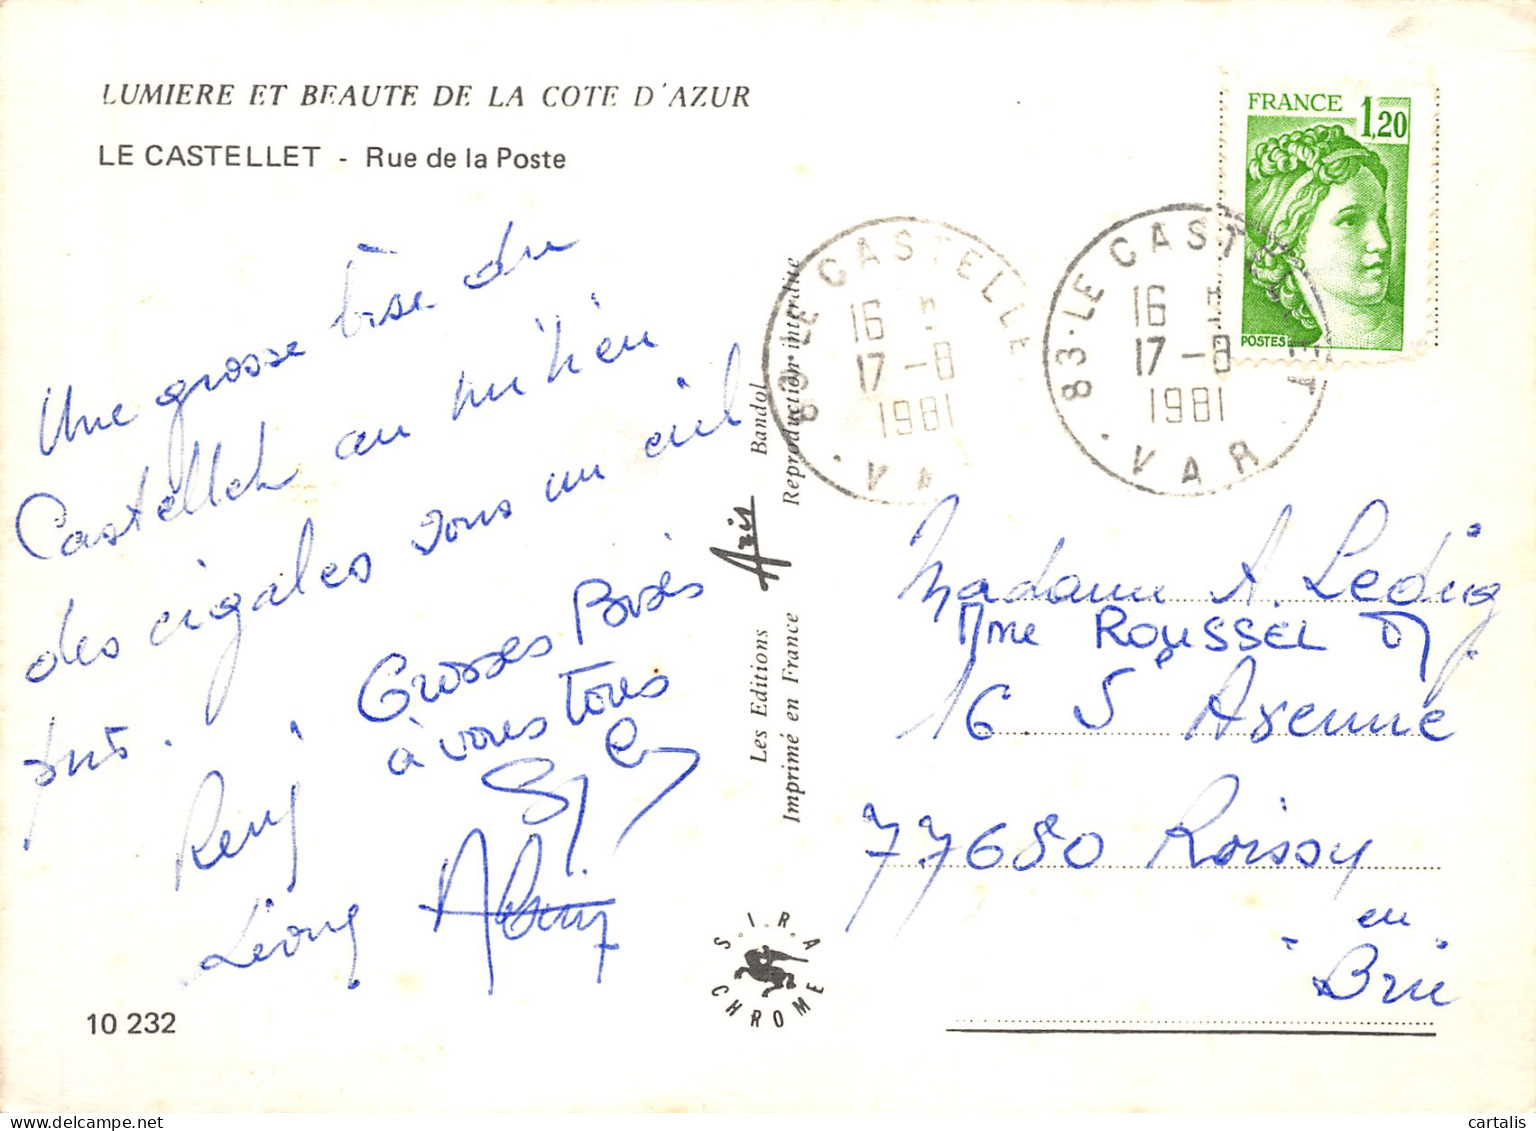 LUMIERE ET BEAUTE DE LA COTE D'AZUR
LE CASTELLET - Rue de la Poste
Une grosse bise du
Castellet au milieu
des cigales sous un ciel
pur.
Grosses Bises
à vous tous
10 232
Les Editions Aris Bandol
Imprimé en France Reproduction interdite
S.I.R.A.
CHROME
83·LE CASTELLE
16 H
17 -8
1981
· VA
83·LE CASTELLET
16 H
17 -8
1981
· VAR
FRANCE 1,20
POSTES
Madame A. Leduq
Mme ROUSSEL
16 Avenue
77680 Roissy
en
Brie
cartalis